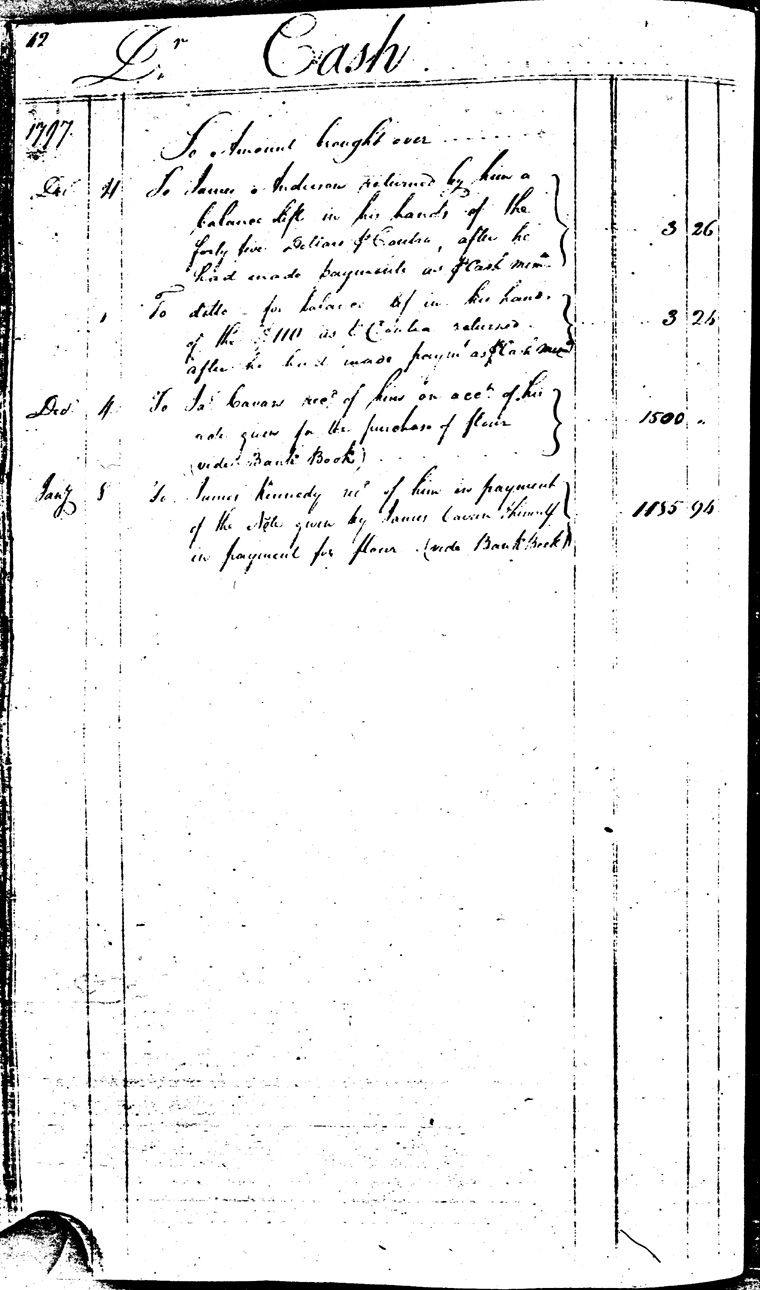 12
Dr. Cash
1797
To Amount brought over
Dec. 4 To James Anderson returned by him a
balance left in his hands of the 3 26
forty five Dollars pr Contra, after he
had made payments as pr Cash Memm.
" To ditto for balance left in his hands
of the $ 111 as pr Contra returned 3 24
after he had made paymt as pr Cash Memm
Decr 4 To Jas Cavan recd of him on acct of his
note given for the purchase of flour 1500 "
(vide Bank Book)
Jany 8 To James Kennedy recd of him in payment
of the Note given by James Cavan & himself 1185 94
in payment for flour (vide Bank Book)